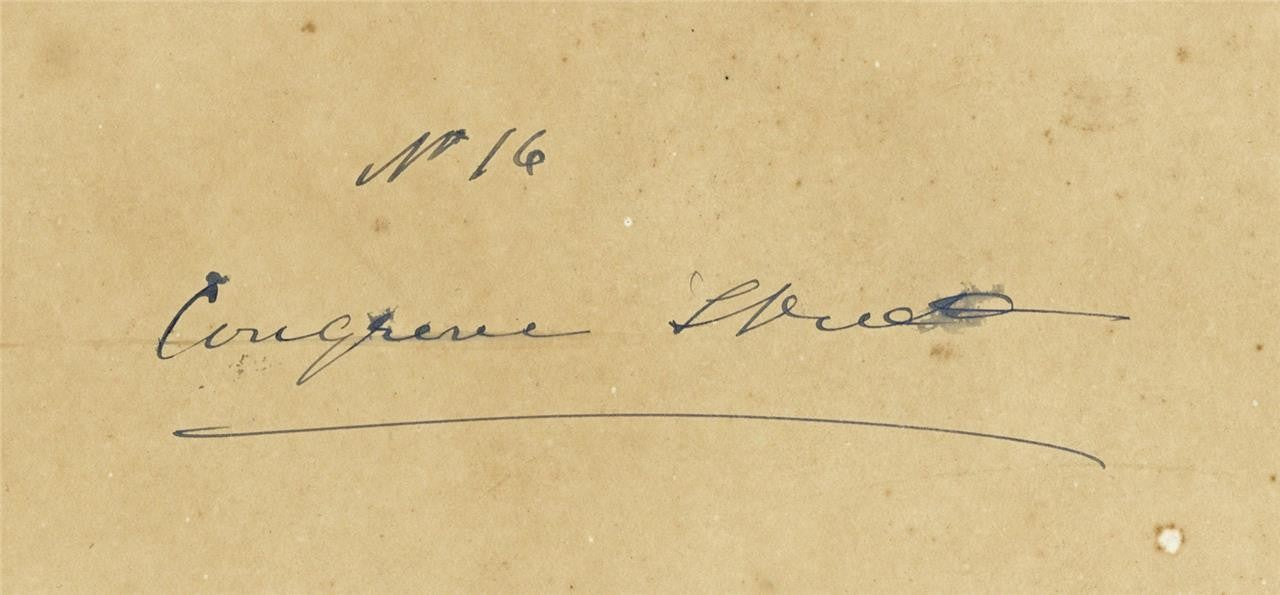 No 16
Congreve Street